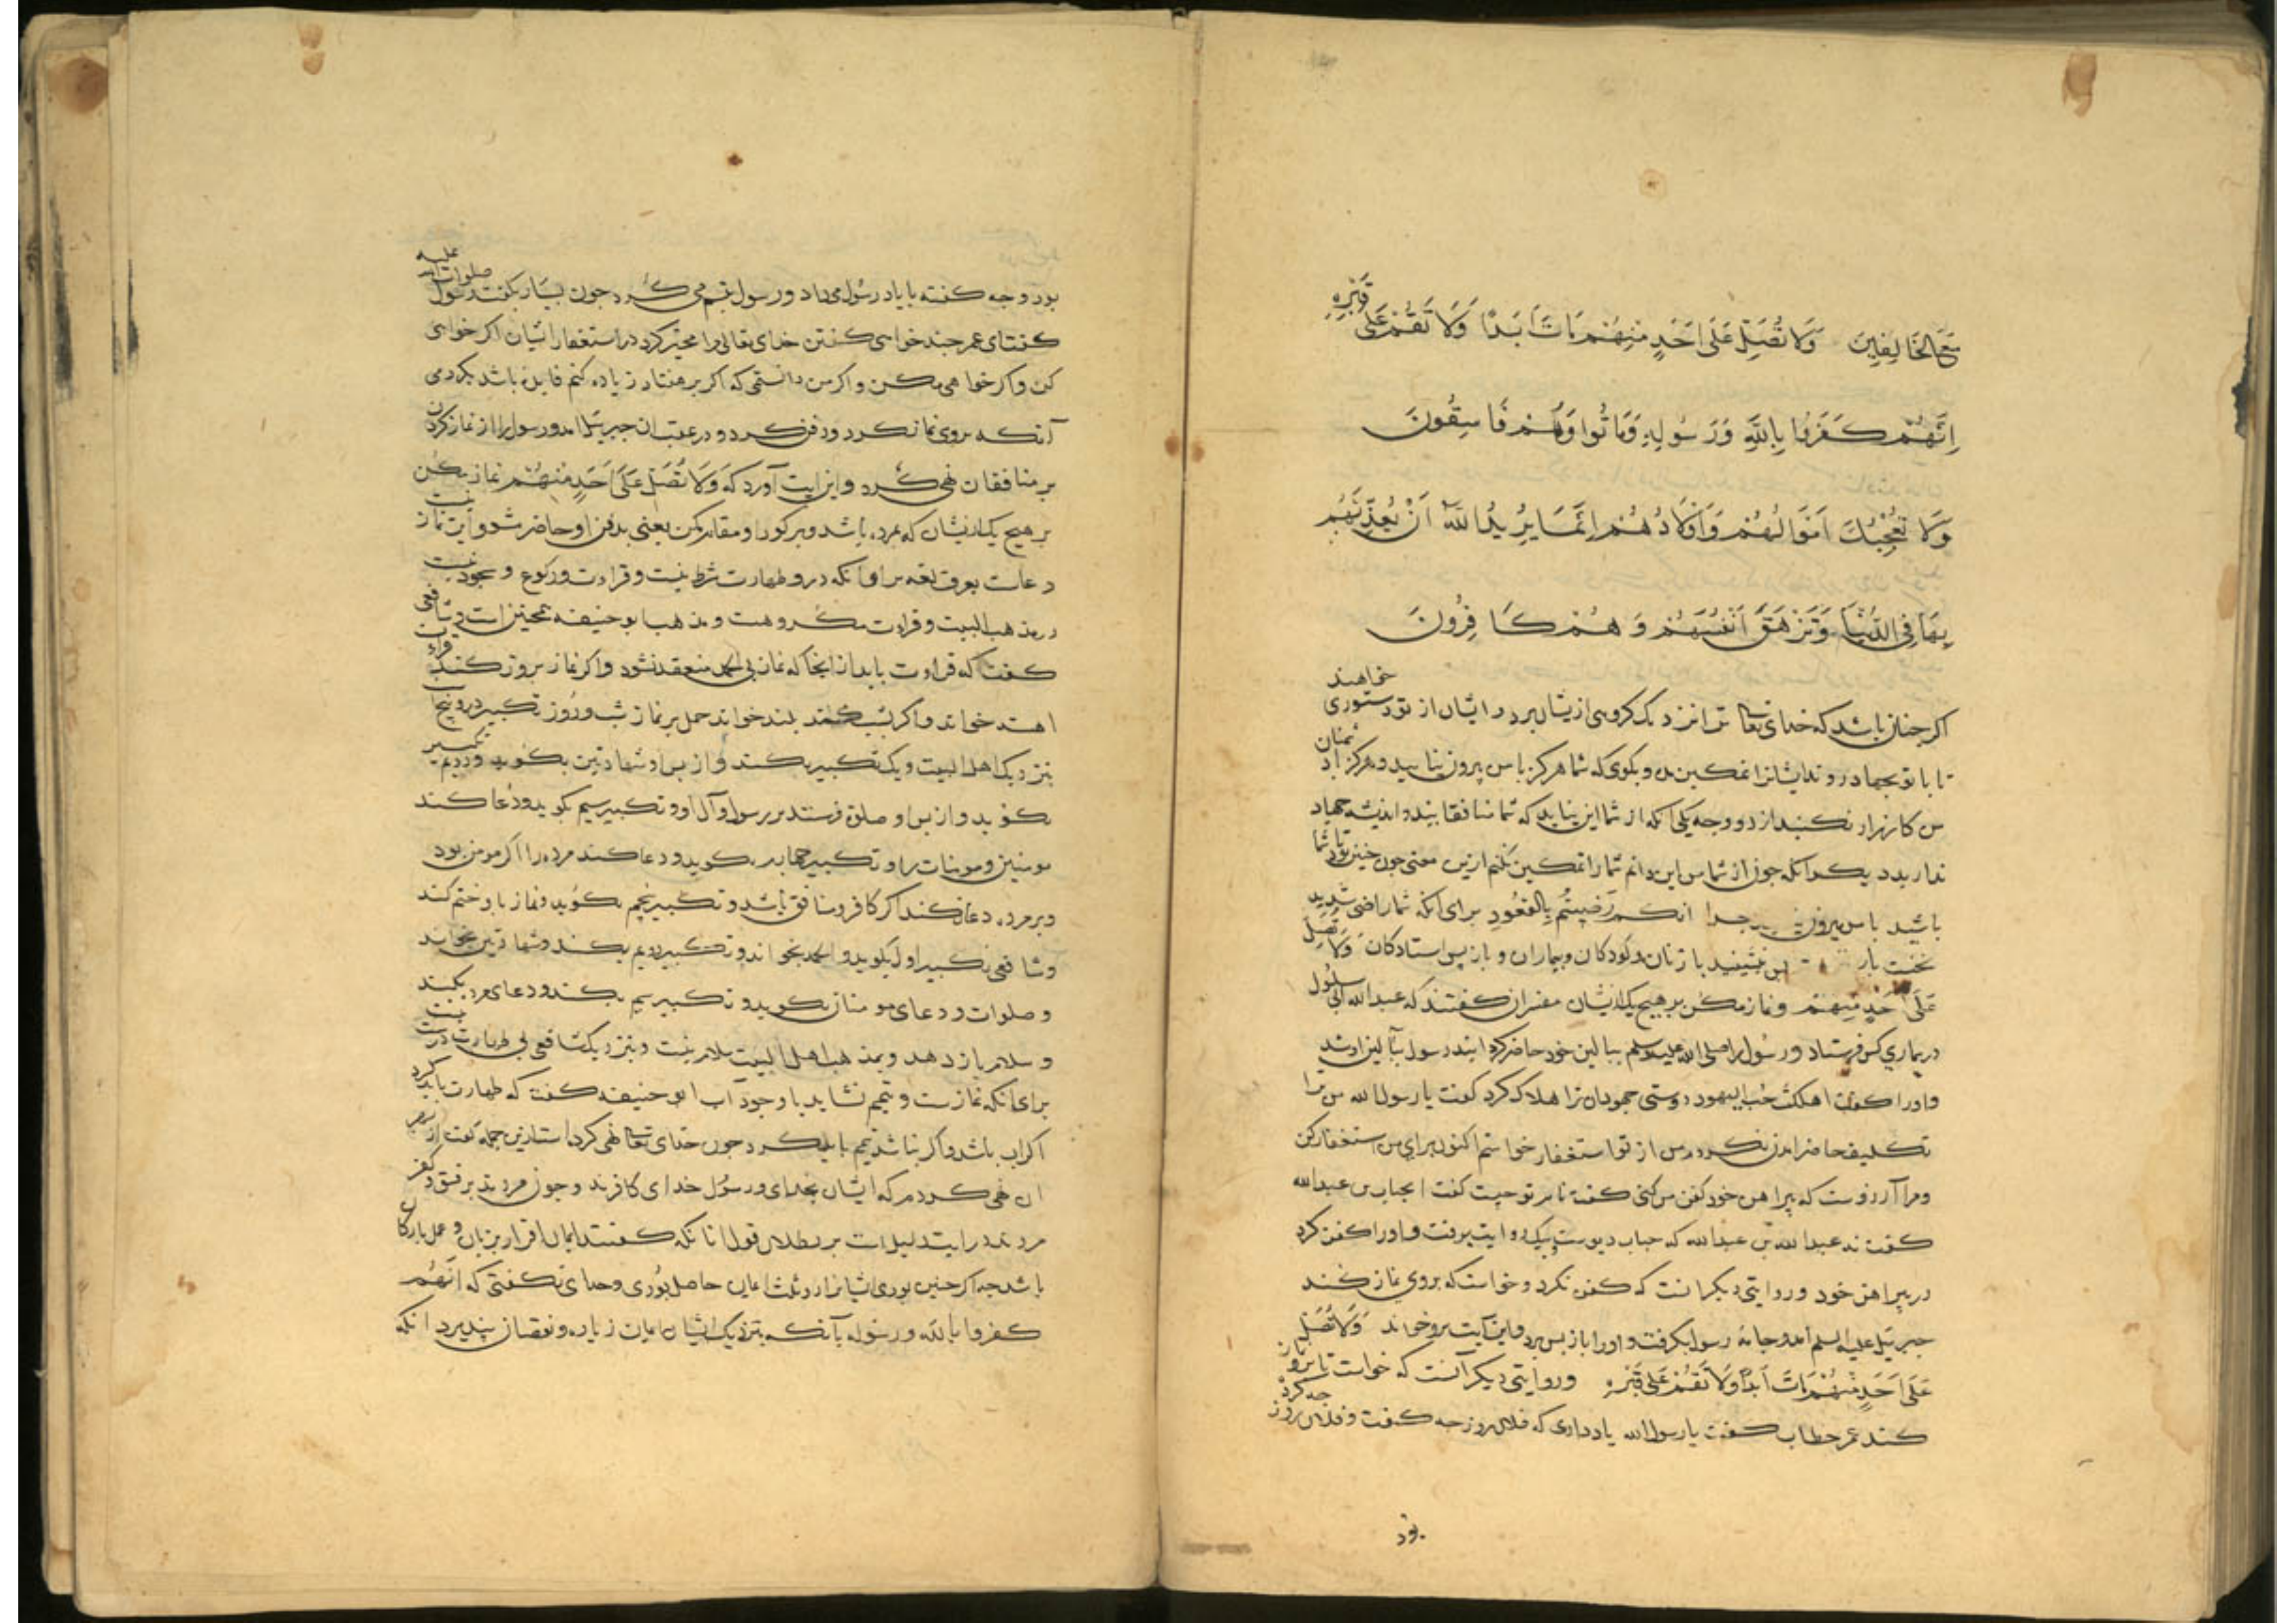 مَعَ الْخَالِفِينَ وَلَا تُصَلِّ عَلَى أَحَدٍ مِنْهُمْ مَاتَ أَبَدًا وَلَا تَقُمْ عَلَى قَبْرِهِ
اِنَّهُمْ كَفَرُوا بِاللَّهِ وَرَسُولِهِ وَمَاتُوا وَهُمْ فَاسِقُونَ
وَلَا تُعْجِبْكَ أَمْوَالُهُمْ وَأَوْلَادُهُمْ إِنَّمَا يُرِيدُ اللَّهُ أَنْ يُعَذِّبَهُمْ
بِهَا فِي الدُّنْيَا وَتَزْهَقَ أَنْفُسُهُمْ وَهُمْ كَافِرُونَ
اکر چنان باشد که خدای تعالی ترا نزدیک کروهی ازیشان برد و ایشان از تو دستوری خواهند
تا با تو بجهاد روند ایشانرا تمکین مده و بکوی که شما هرکز با من بیرون نیایید و هرکز با دشمنان
من کارزار نکنید از دو وجه یکی آنکه از شما این نیاید که شما منافقانید و اندیشه جهاد
ندارید دیکر آنکه جون از شما من این دانم شما را تمکین نکنم ازین معنی جون جنین بود شما
باشید با من بیرون انکم رَضِيتُمْ بِالْقُعُودِ برای آنکه شما راضی شدید
نخست بار بنشینید با زنان و کودکان و بیماران و بازپس استادکان وَلَا تُصَلِّ
عَلَى أَحَدٍ مِنْهُمْ و نماز مکن بر هیچ یک ازیشان مفسران کفتند که عبد الله ابی سلول
در بیماری کس فرستاد و رسول را صلی الله علیه وسلم ببالین خود حاضر کرد رسول ببالین او شد
و او را کفت اهلکک حب الیهود دوستی جهودان ترا هلاک کرد کفت یا رسول الله من ترا
تکلیف حاضر امدن نکردم من از تو استغفار خواستم اکنون برای من استغفار کن
و مرا آرزوست که پیراهن خود کفن من کنی کفت نام تو حیست کفت الحباب بن عبد الله
کفت نه عبد الله بن عبد الله که حباب دیوست بیک روایت برفت و او را کفن کرد
در پیراهن خود و روایتی دیکر انست که کفن نکرد و خواست که بروی نماز کند
جبرئیل علیه السلم امد و جامه رسول بکرفت و او را باز پس برد و این آیت برو خواند وَلَا تُصَلِّ
عَلَى أَحَدٍ مِنْهُمْ مَاتَ أَبَدًا وَلَا تَقُمْ عَلَى قَبْرِهِ و روایتی دیکر آنست که خواست تا برو نماز
کند عمر خطاب کفت یا رسول الله یاد داری که فلان روز چه کفت و فلان روز چه کرد
بود
بود و چه کفته با یاد رسول می داد و رسول تبسم می کرد جون بسیار بکفت رسول صلوات الله علیه
کفت ای عمر چند خواهی کفتن خدای تعالی مرا مخیر کرد در استغفار ایشان اکر خواهی
کن و اکر خواهی مکن و اکر من دانستمی که اکر بر هفتاد زیاده کنم فایده باشد بکردمی
آنکه بروی نماز کرد و دفن کرد و در عقب ان جبرئیل امد و رسول را از نماز کردن
بر منافقان نهی کرد و این ایت آورد که وَلَا تُصَلِّ عَلَى أَحَدٍ مِنْهُمْ نماز مکن
بر هیچ یک ازیشان که بمرده باشد و بر کور او مقام مکن یعنی بدفن او حاضر مشو و این نماز نیست
دعاست بعرف لغه برای آنکه درو طهارت شرط نیست و قراءت و رکوع و سجود نیست
در مذهب اهل البیت و قراءت مکروهست و مذهب ابو حنیفه همچنین است و شافعی
کفت که قراءت باید از انجا که نماز بی الحمد منعقد نشود و اکر نماز بروز کنند قراءت
اهسته خواند و اکر بشب کنند بلند خواند حمل بر نماز شب و روز تکبیر درو پنج است
بنزدیک اهل البیت و یک تکبیر بکند و از پس او شهادتین بکوید و دویم تکبیر
بکوید و از پس او صلوة فرستد بر رسول و آل او و تکبیر سیم بکوید و دعا کند
مومنین و مومنات را و تکبیر چهارم بکوید و دعا کند مرده را اکر مومن بود
و بر مرده دعا کند اکر کافر و منافق باشد و تکبیر پنجم بکوید و نماز با او ختم کند
و شافعی تکبیر اول بکوید و الحمد بخواند و تکبیر دویم بکند و شهادتین بخواند
و صلوات و دعای مومنان بکوید و تکبیر سیم بکند و دعای مرده بکند
و سلام باز دهد و بمذهب اهل البیت سلام نیست و بنزدیک شافعی بی طهارت درست نیست
برای آنکه نمازست و تیمم نشاید با وجود آب ابو حنیفه کفت که طهارت باید کرد
اکر اب باشد و اکر نباشد تیمم باید کرد جون خدای تعالی نهی کرد
ان نهی کردم که ایشان بخدای و رسول خدای کافرند و جون مردند بر فسق و کفر
مردند درایت دلیل است بر بطلان قول انانکه کفتند ایمان اقرار بزبان و عمل بارکان
باشد چه اکر چنین بودی ایشانرا دو ثلث ایمان حاصل بودی و خدای نکفتی که انهم
کفروا بالله و رسوله با آنکه بنزدیک ایشان ایمان زیاده و نقصان پذیرد انکه